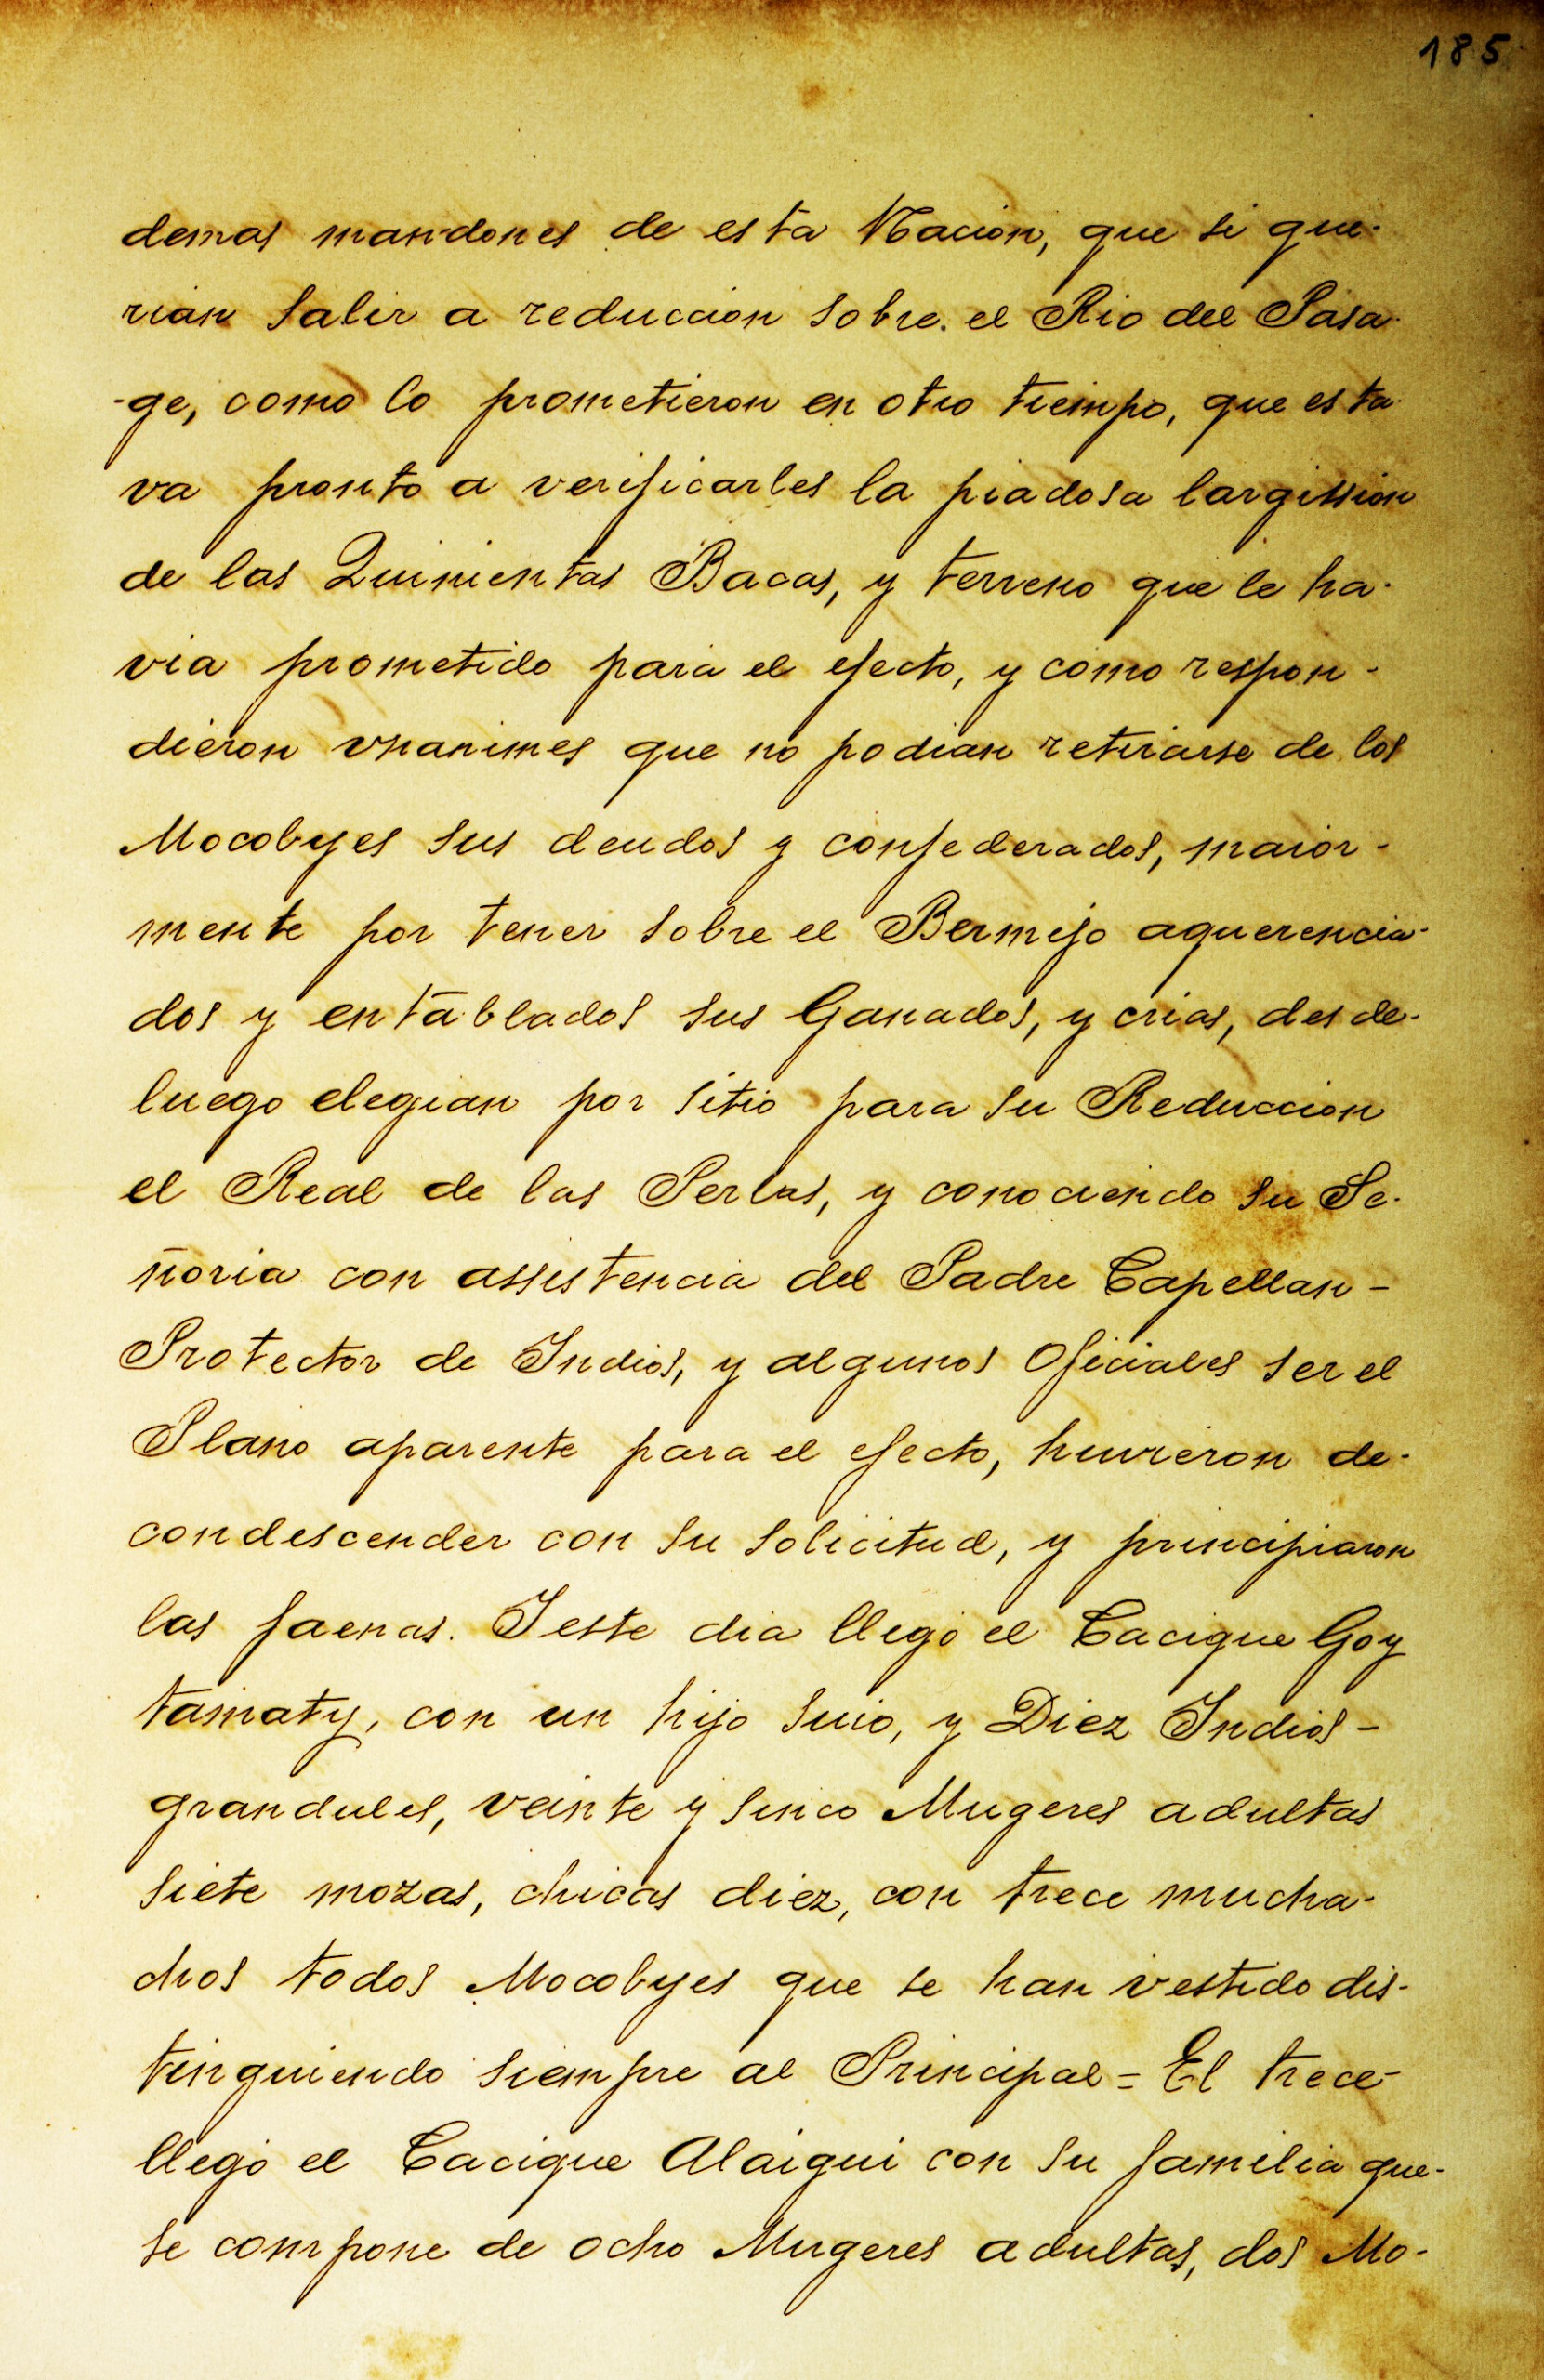 185
demas mandones de esta Nacion, que si que-
rian salir a reduccion sobre el Rio del Pasa-
-ge, como lo prometieron en otro tiempo, que esta-
va pronto a verificarles la piadosa largission
de las Quinientas Bacas, y terreno que le ha-
via prometido para el efecto, y como respon-
dieron vnanimes que no podian retirarse de los
Mocobyes sus deudos y confederados, maior-
mente por tener sobre el Bermejo aquerencia-
dos y entablados sus Ganados, y crias, desde-
luego elegian por sitio para su Reduccion
el Real de las Perlas, y conociendo su Se-
ñoria con assistencia del Padre Capellan -
Protector de Indios, y algunos Oficiales ser el
Plano aparente para el efecto, huvieron de-
condescender con su solicitud, y principiaron
las faenas. Y este dia llegó el Cacique Goy
tamaty, con un hijo suio, y Diez Indios -
grandules, veinte y sinco Mugeres adultas
siete mozas, chicas diez, con trece mucha-
chos todos Mocobyes que se han vestido dis-
tinguiendo siempre al Principal = El trece-
llegó el Cacique Alaiqui con su familia que-
se compone de ocho Mugeres adultas, dos Mo-